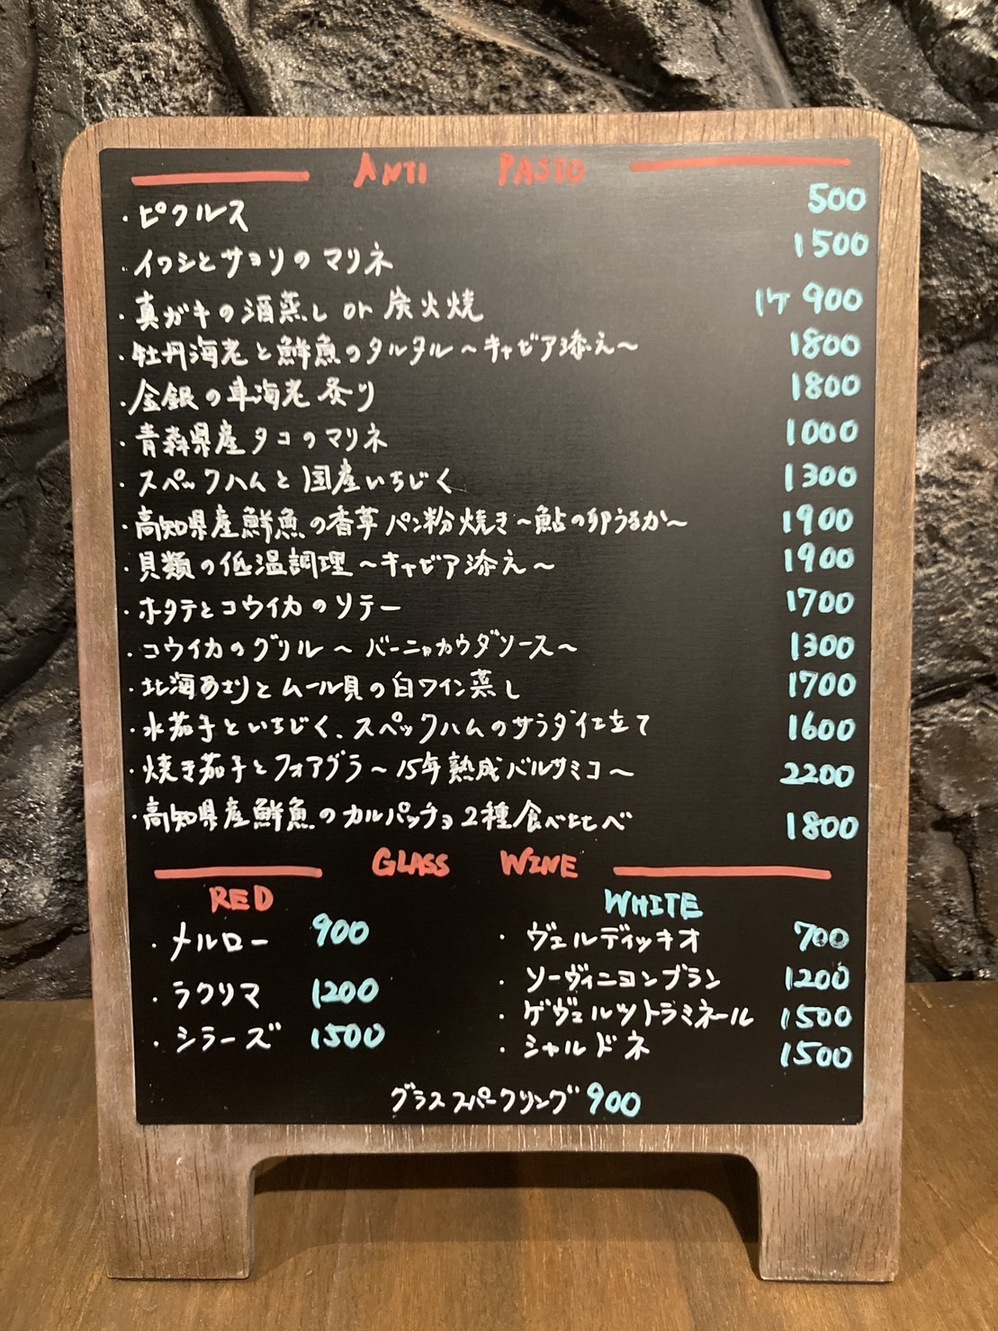 ANTI PASTO
・ピクルス 500
・イワシとサヨリのマリネ 1500
・真ガキの酒蒸し or 炭火焼 1ケ 900
・牡丹海老と鮮魚のタルタル～キャビア添え～ 1800
・金銀の車海老炙り 1800
・青森県産タコのマリネ 1000
・スペックハムと国産いちじく 1300
・高知県産鮮魚の香草パン粉焼き～鮎の卵うるか～ 1900
・貝類の低温調理～キャビア添え～ 1900
・ホタテとコウイカのソテー 1700
・コウイカのグリル～バーニャカウダソース～ 1300
・北海あさりとムール貝の白ワイン蒸し 1700
・水茄子といちじく、スペックハムのサラダ仕立て 1600
・焼き茄子とフォアグラ～15年熟成バルサミコ～ 2200
・高知県産鮮魚のカルパッチョ2種食べ比べ 1800
GLASS WINE
RED
・メルロー 900
・ラクリマ 1200
・シラーズ 1500
WHITE
・ヴェルディッキオ 700
・ソーヴィニヨンブラン 1200
・ゲヴェルツトラミネール 1500
・シャルドネ 1500
グラススパークリング 900